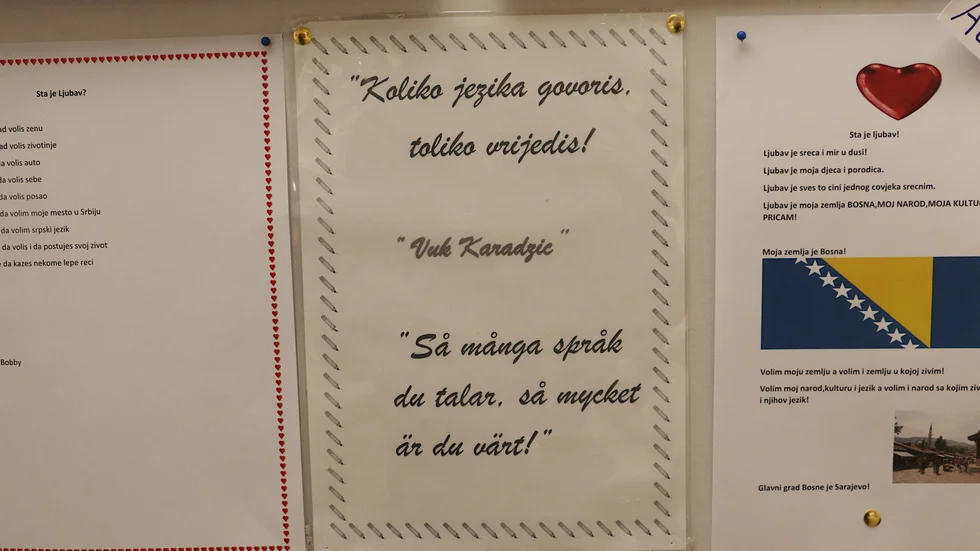 Sta je Ljubav?
volis zenu
volis zivotinje
volis auto
da volis sebe
da volis posao
da volim moje mesto u Srbiju
da volim srpski jezik
da volis i da postujes svoj zivot
da kazes nekome lepe reci
Bobby
"Koliko jezika govoris,
toliko vrijedis!
"Vuk Karadzic"
"Så många språk
du talar, så mycket
är du värt!"
Sta je ljubav!
Ljubav je sreca i mir u dusi!
Ljubav je moja djeca i porodica.
Ljubav je sves to cini jednog covjeka srecnim.
Ljubav je moja zemlja BOSNA,MOJ NAROD,MOJA
PRICAM!
Moja zemlja je Bosna!
Volim moju zemlju a volim i zemlju u kojoj zivim!
Volim moj narod,kulturu i jezik a volim i narod sa kojim
i njihov jezik!
Glavni grad Bosne je Sarajevo!